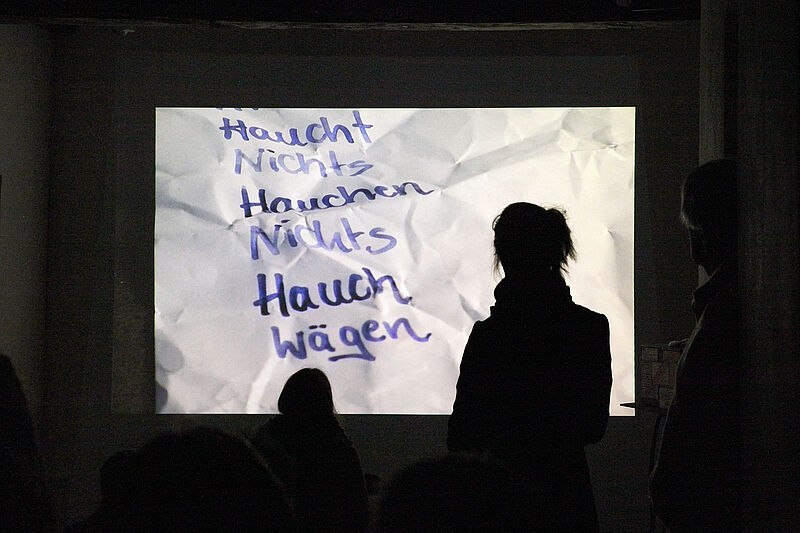 Haucht
Nichts
Hauchen
Nichts
Hauch
wägen